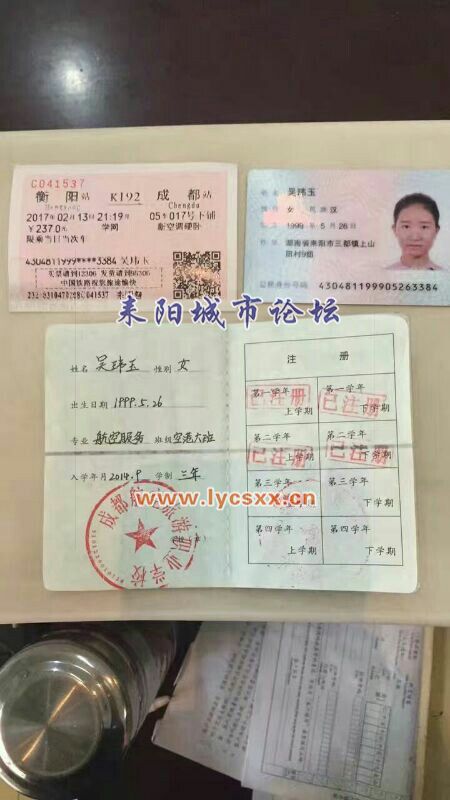 C041537
衡阳站 K192 成都站
Hengyang Chengdu
2017年02月13日21:19开 05车017号下铺
¥237.0元 学网 新空调硬卧
限乘当日当次车
4304811999****3384 吴玮玉
买票请到12306 发货请到95306
中国铁路祝您旅途愉快
吴玮玉
女 民族 汉
1999 年 5 月 26 日
湖南省耒阳市三都镇上山
田村9组
公民身份号码 430481199905263384
耒阳城市论坛
姓名 吴玮玉 性别 女
出生日期 1999.5.26
专业 航空服务 班级 空港大班
入学年月 2014.9 学制 三年
注 册
第一学年 上学期 已注册
第一学年 下学期 已注册
第二学年 上学期 已注册
第二学年 下学期 已注册
第三学年 上学期
第三学年 下学期
第四学年 上学期
第四学年 下学期
www.lycsxx.cn